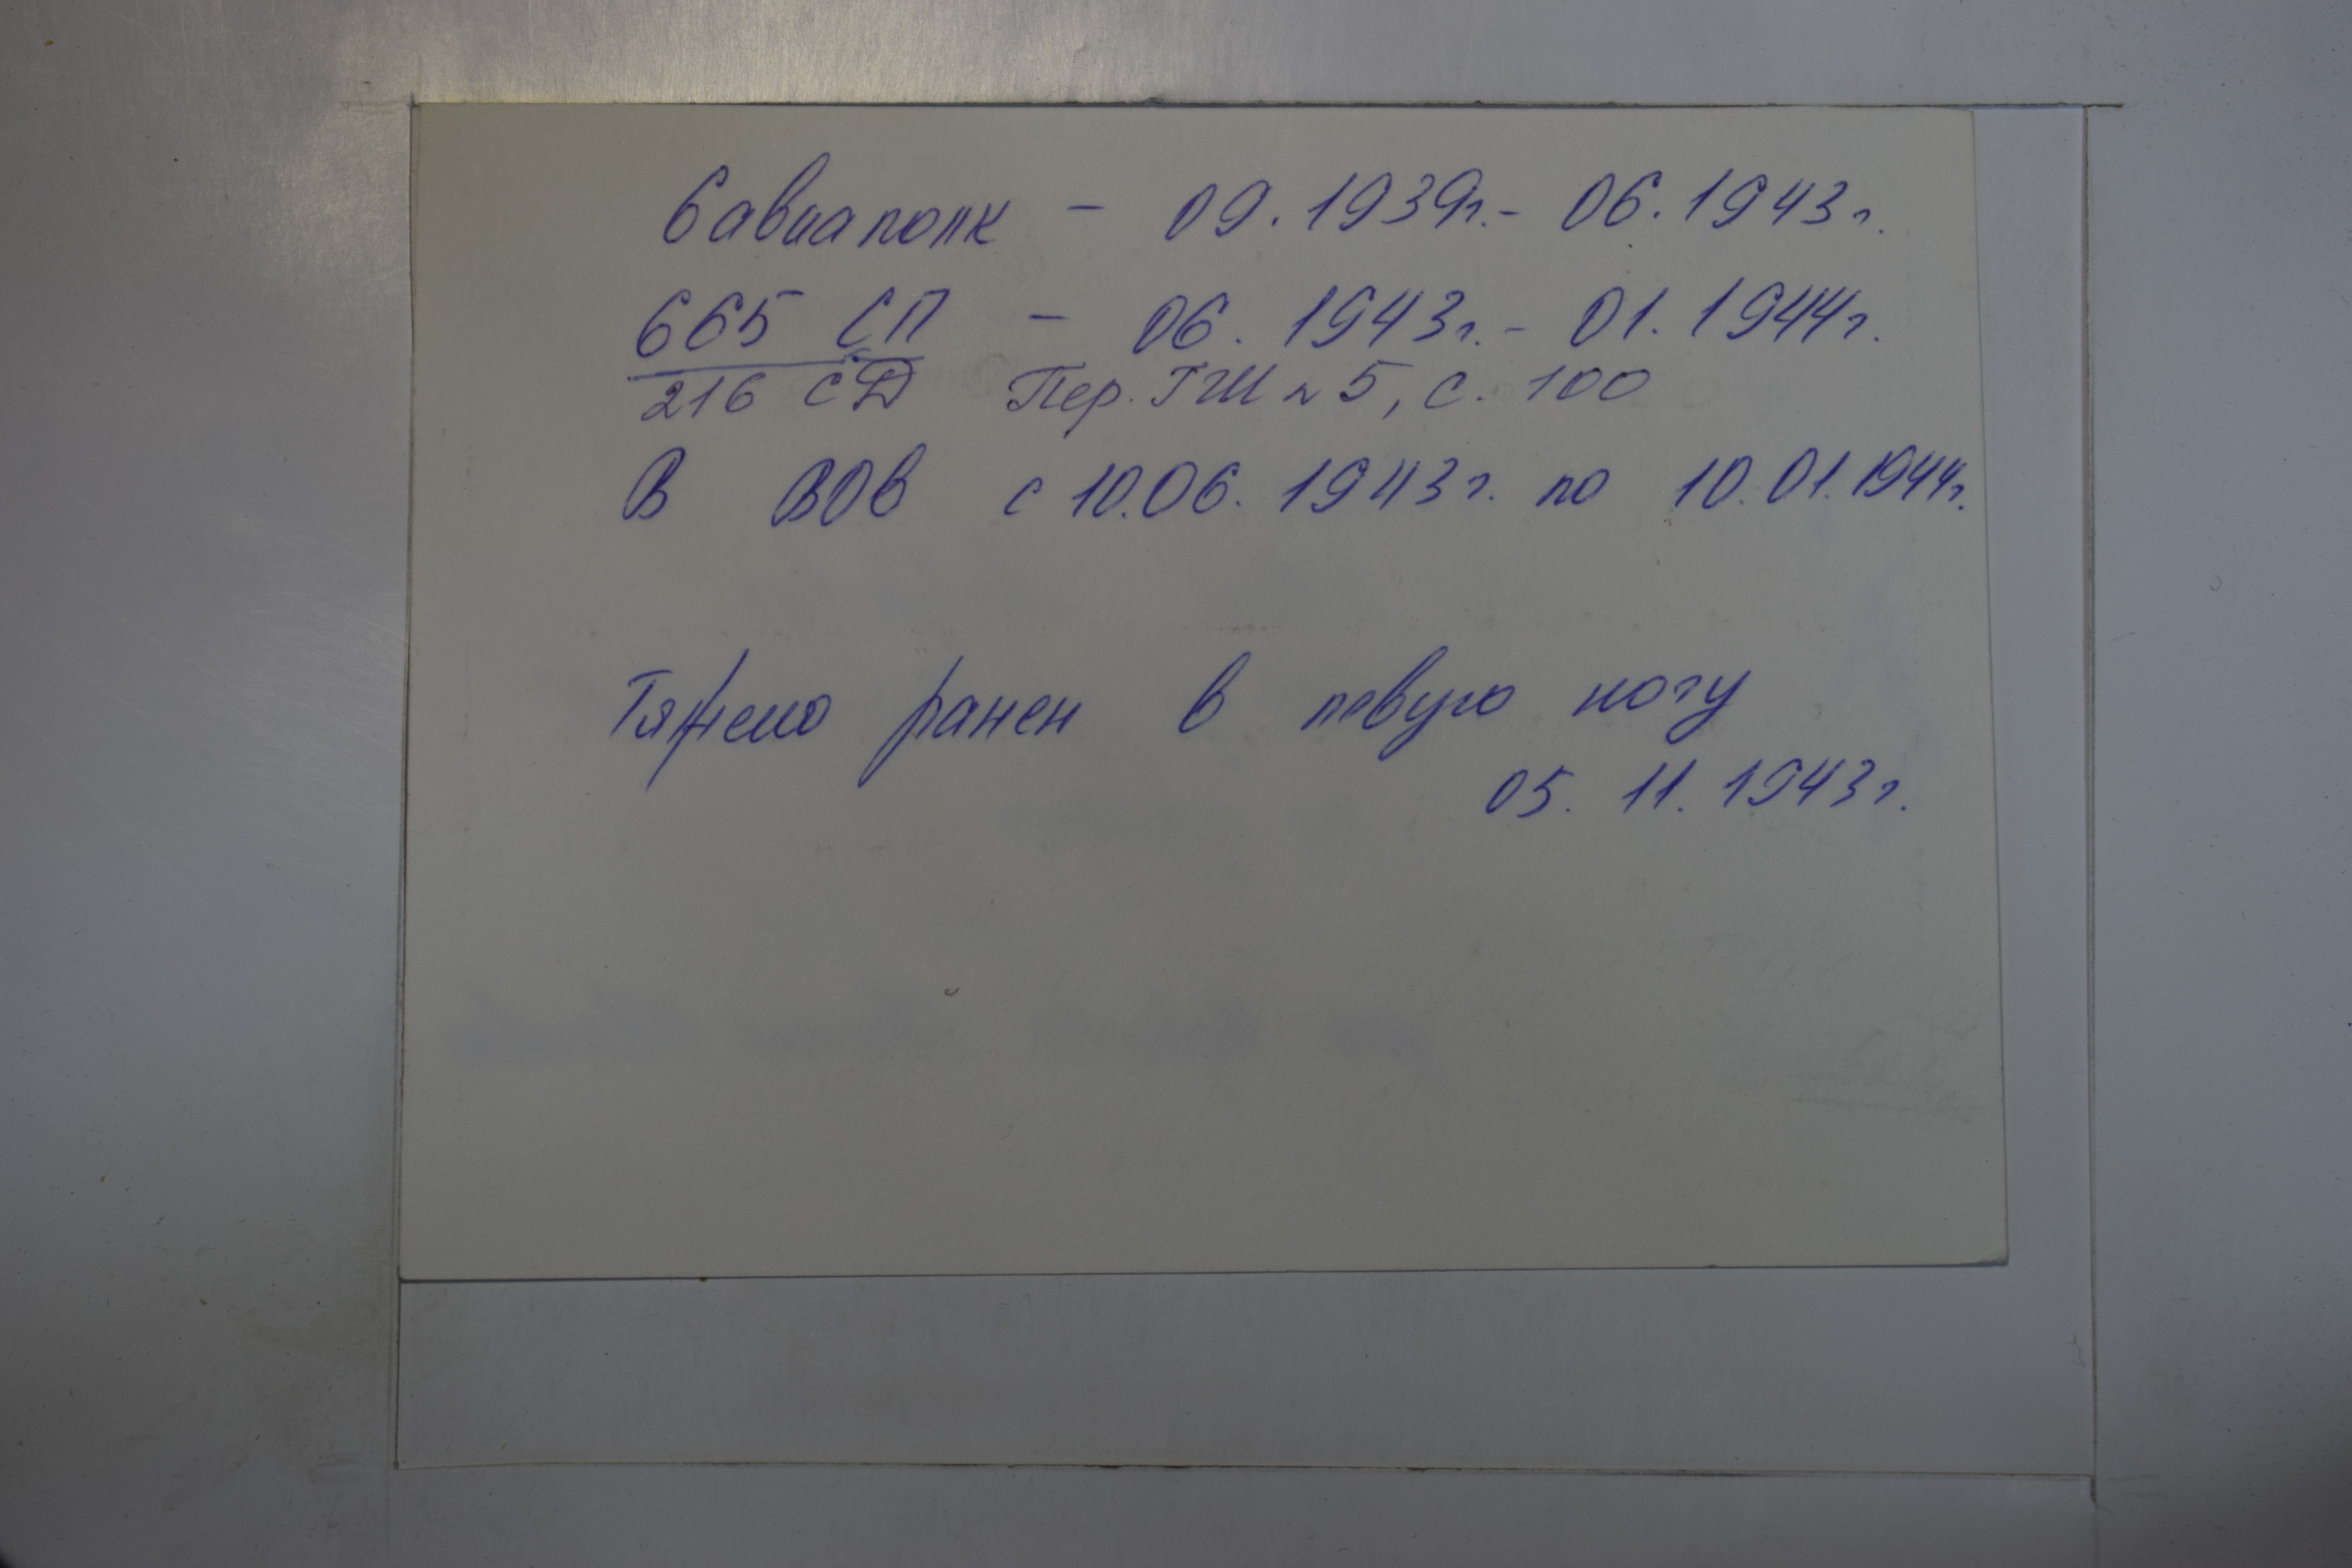 6 авиаполк - 09.1939г. - 06.1943г.
665 СП - 06.1943г. - 01.1944г.
216 СД Пер. ГШ № 5, с. 100
В ВОВ с 10.06.1943г. по 10.01.1944г.
Тяжело ранен в левую ногу
05.11.1943г.